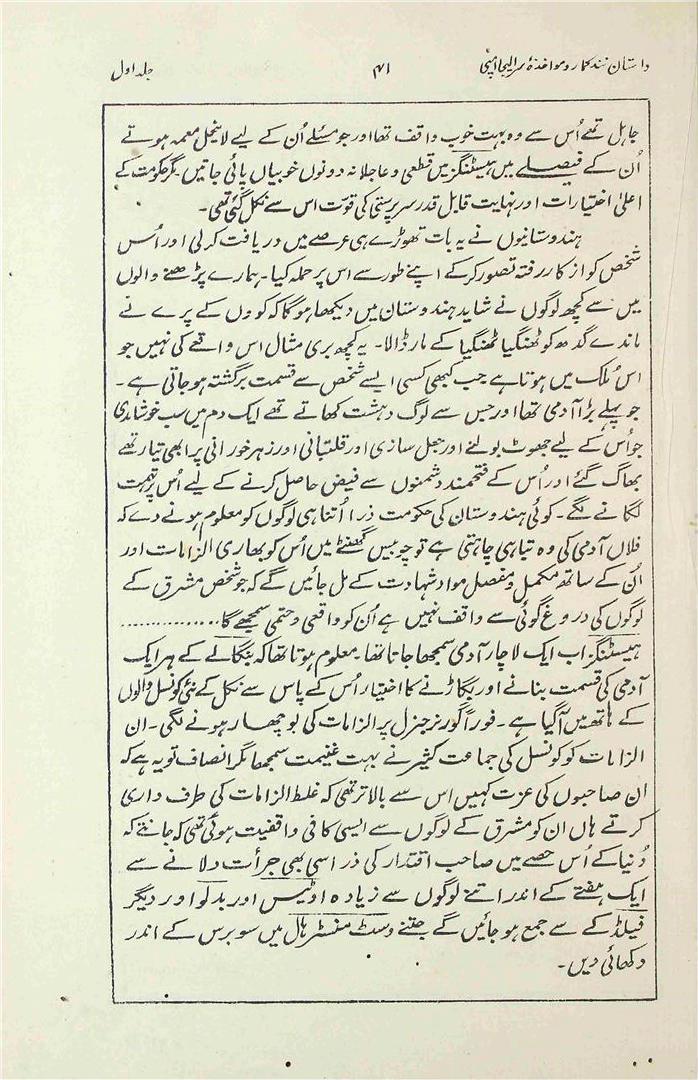 داستان نندکمار و مواخذۂ سر الیجا امپی
۴۱
جلد اول
جاہل تھے اُس سے وہ بہت خوب واقف تھا اور جو مسئلے اُن کے لیے لاینحل معمہ ہوتے
اُن کے فیصلے میں ہیسٹنگز میں قطعی و عاجلانہ دونوں خوبیاں پائی جاتیں۔ مگر حکومت کے
اعلیٰ اختیارات اور نہایت قابل قدر سرپرستی کی قوت اس سے نکل گئی تھی۔
ہندوستانیوں نے یہ بات تھوڑے ہی عرصے میں دریافت کرلی اور اُس
شخص کو از کار رفتہ تصور کرکے اپنے طور سے اس پر حملہ کیا۔ ہمارے پڑھنے والوں
میں سے کچھ لوگوں نے شاید ہندوستان میں دیکھا ہوگا کہ کووں کے پرے نے
ماندے گدھ کو ٹھنگیا ٹھنگیا کے مار ڈالا۔ یہ کچھ بری مثال اس واقعے کی نہیں جو
اس مُلک میں ہوتا ہے جب کبھی کسی ایسے شخص سے قسمت برگشتہ ہوجاتی ہے۔
جو پہلے بڑا آدمی تھا اور جس سے لوگ دہشت کھاتے تھے ایک دم میں سب خوشامدی
جو اُس کے لیے جھوٹ بولنے اور جعل سازی اور قلتبانی اور زہر خورانی پر ابھی تیار تھے
بھاگ گئے اور اُس کے فتحمند دشمنوں سے فیض حاصل کرنے کے لیے اُس پر تہمت
لگانے لگے۔ کوئی ہندوستان کی حکومت ذرا اُتنا ہی لوگوں کو معلوم ہونے دے کہ
فلاں آدمی کی وہ تباہی چاہتی ہے تو چوبیس گھنٹے میں اُس کو بھاری الزامات اور
اُن کے ساتھ مکمل و مفصل مواد شہادت کے مل جائیں گے کہ جو شخص مشرق کے
لوگوں کی دروغ گوئی سے واقف نہیں ہے اُن کو واقعی و حتمی سمجھے گا...............
ہیسٹنگز اب ایک لاچار آدمی سمجھا جاتا تھا۔ معلوم ہوتا تھا کہ بنگالے کے ہر ایک
آدمی کی قسمت بنانے اور بگاڑنے کا اختیار اُس کے پاس سے نکل کے نئی کونسل والوں
کے ہاتھ میں آگیا ہے۔ فوراً گورنر جنرل پر الزامات کی بوچھار ہونے لگی۔ ان
الزامات کو کونسل کی جماعت کثیر نے بہت غنیمت سمجھا مگر انصاف تو یہ ہے کہ
ان صاحبوں کی عزت کہیں اس سے بالاتر تھی کہ غلط الزامات کی طرف داری
کرتے ہاں ان کو مشرق کے لوگوں سے ایسی کافی واقفیت نہ ہوئی تھی کہ جانتے کہ
دُنیا کے اُس حصے میں صاحب اقتدار کی ذرا سی بھی جرأت دلانے سے
ایک ہفتے کے اندر اتنے لوگوں سے زیادہ اوٹیس اور بدلو اور دیگر
فیلڈ کے سے جمع ہوجائیں گے جتنے وسٹ منسٹر ہال میں سو برس کے اندر
دکھائی دیں۔